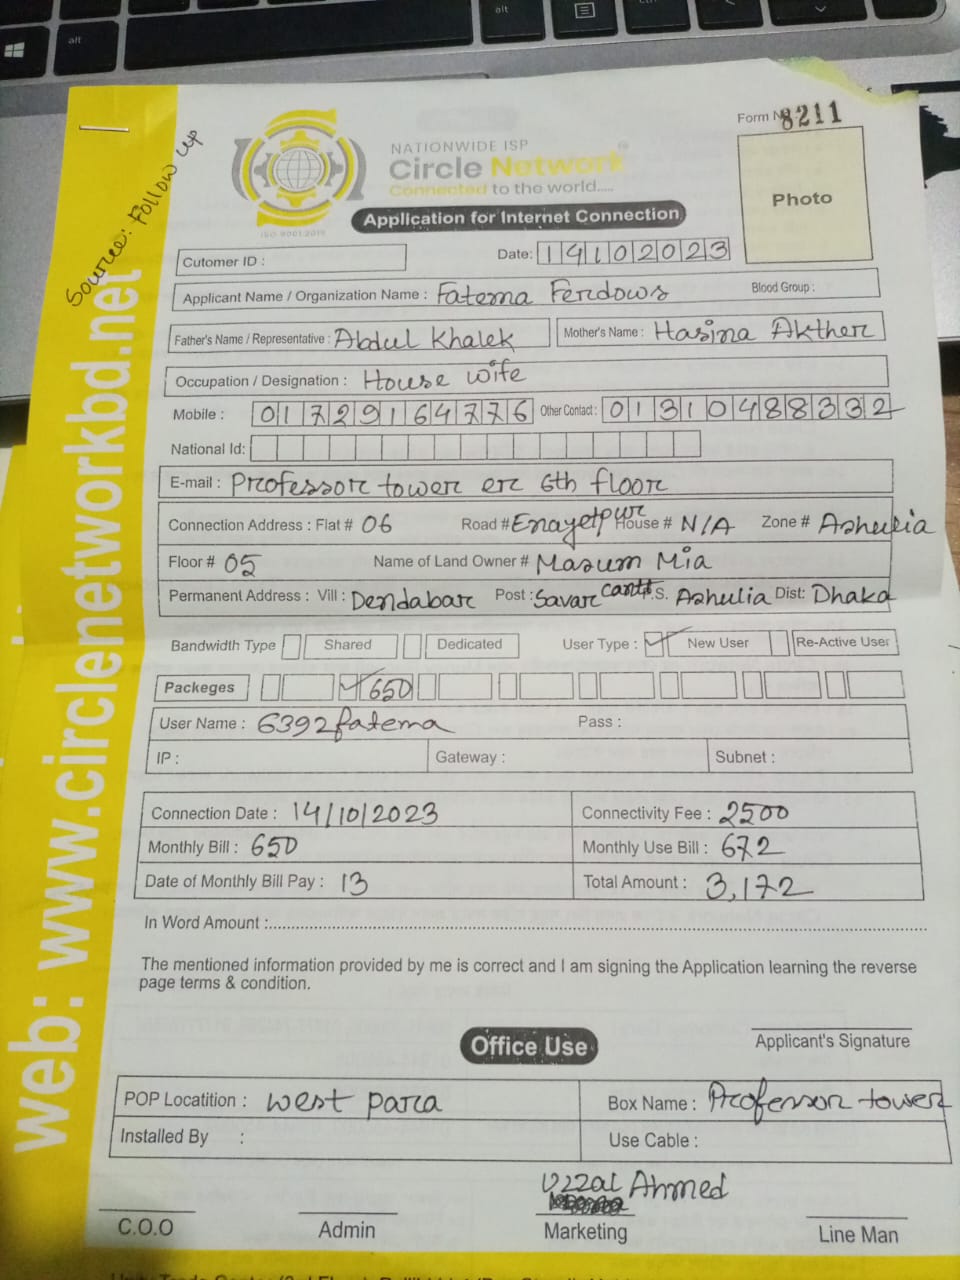 Form N 8211
NATIONWIDE ISP
Circle Network
Connected to the world.....
ISO 9001:2015
Application for Internet Connection
Photo
Source: Follow up
web: www.circlenetworkbd.net
Cutomer ID :
Date: 14102023
Applicant Name / Organization Name : Fatema Ferdows
Blood Group :
Father's Name / Representative : Abdul Khalek
Mother's Name : Hasina Akther
Occupation / Designation : House wife
Mobile : 01729164776 Other Contact : 01310488332
National Id:
E-mail : Professor tower er 6th floor
Connection Address : Flat # 06 Road # Enayetpur House # N/A Zone # Ashulia
Floor # 05 Name of Land Owner # Masum Mia
Permanent Address : Vill : Dendabar Post : Savar cantt P.S. Ashulia Dist: Dhaka
Bandwidth Type Shared Dedicated User Type : New User Re-Active User
Packeges 650
User Name : 6392fatema Pass :
IP : Gateway : Subnet :
Connection Date : 14/10/2023 Connectivity Fee : 2500
Monthly Bill : 650 Monthly Use Bill : 672
Date of Monthly Bill Pay : 13 Total Amount : 3,172
In Word Amount :
The mentioned information provided by me is correct and I am signing the Application learning the reverse
page terms & condition.
Applicant's Signature
Office Use
POP Locatition : west para Box Name : Professor tower
Installed By : Use Cable :
Uzzal Ahmed
C.O.O Admin Marketing Line Man